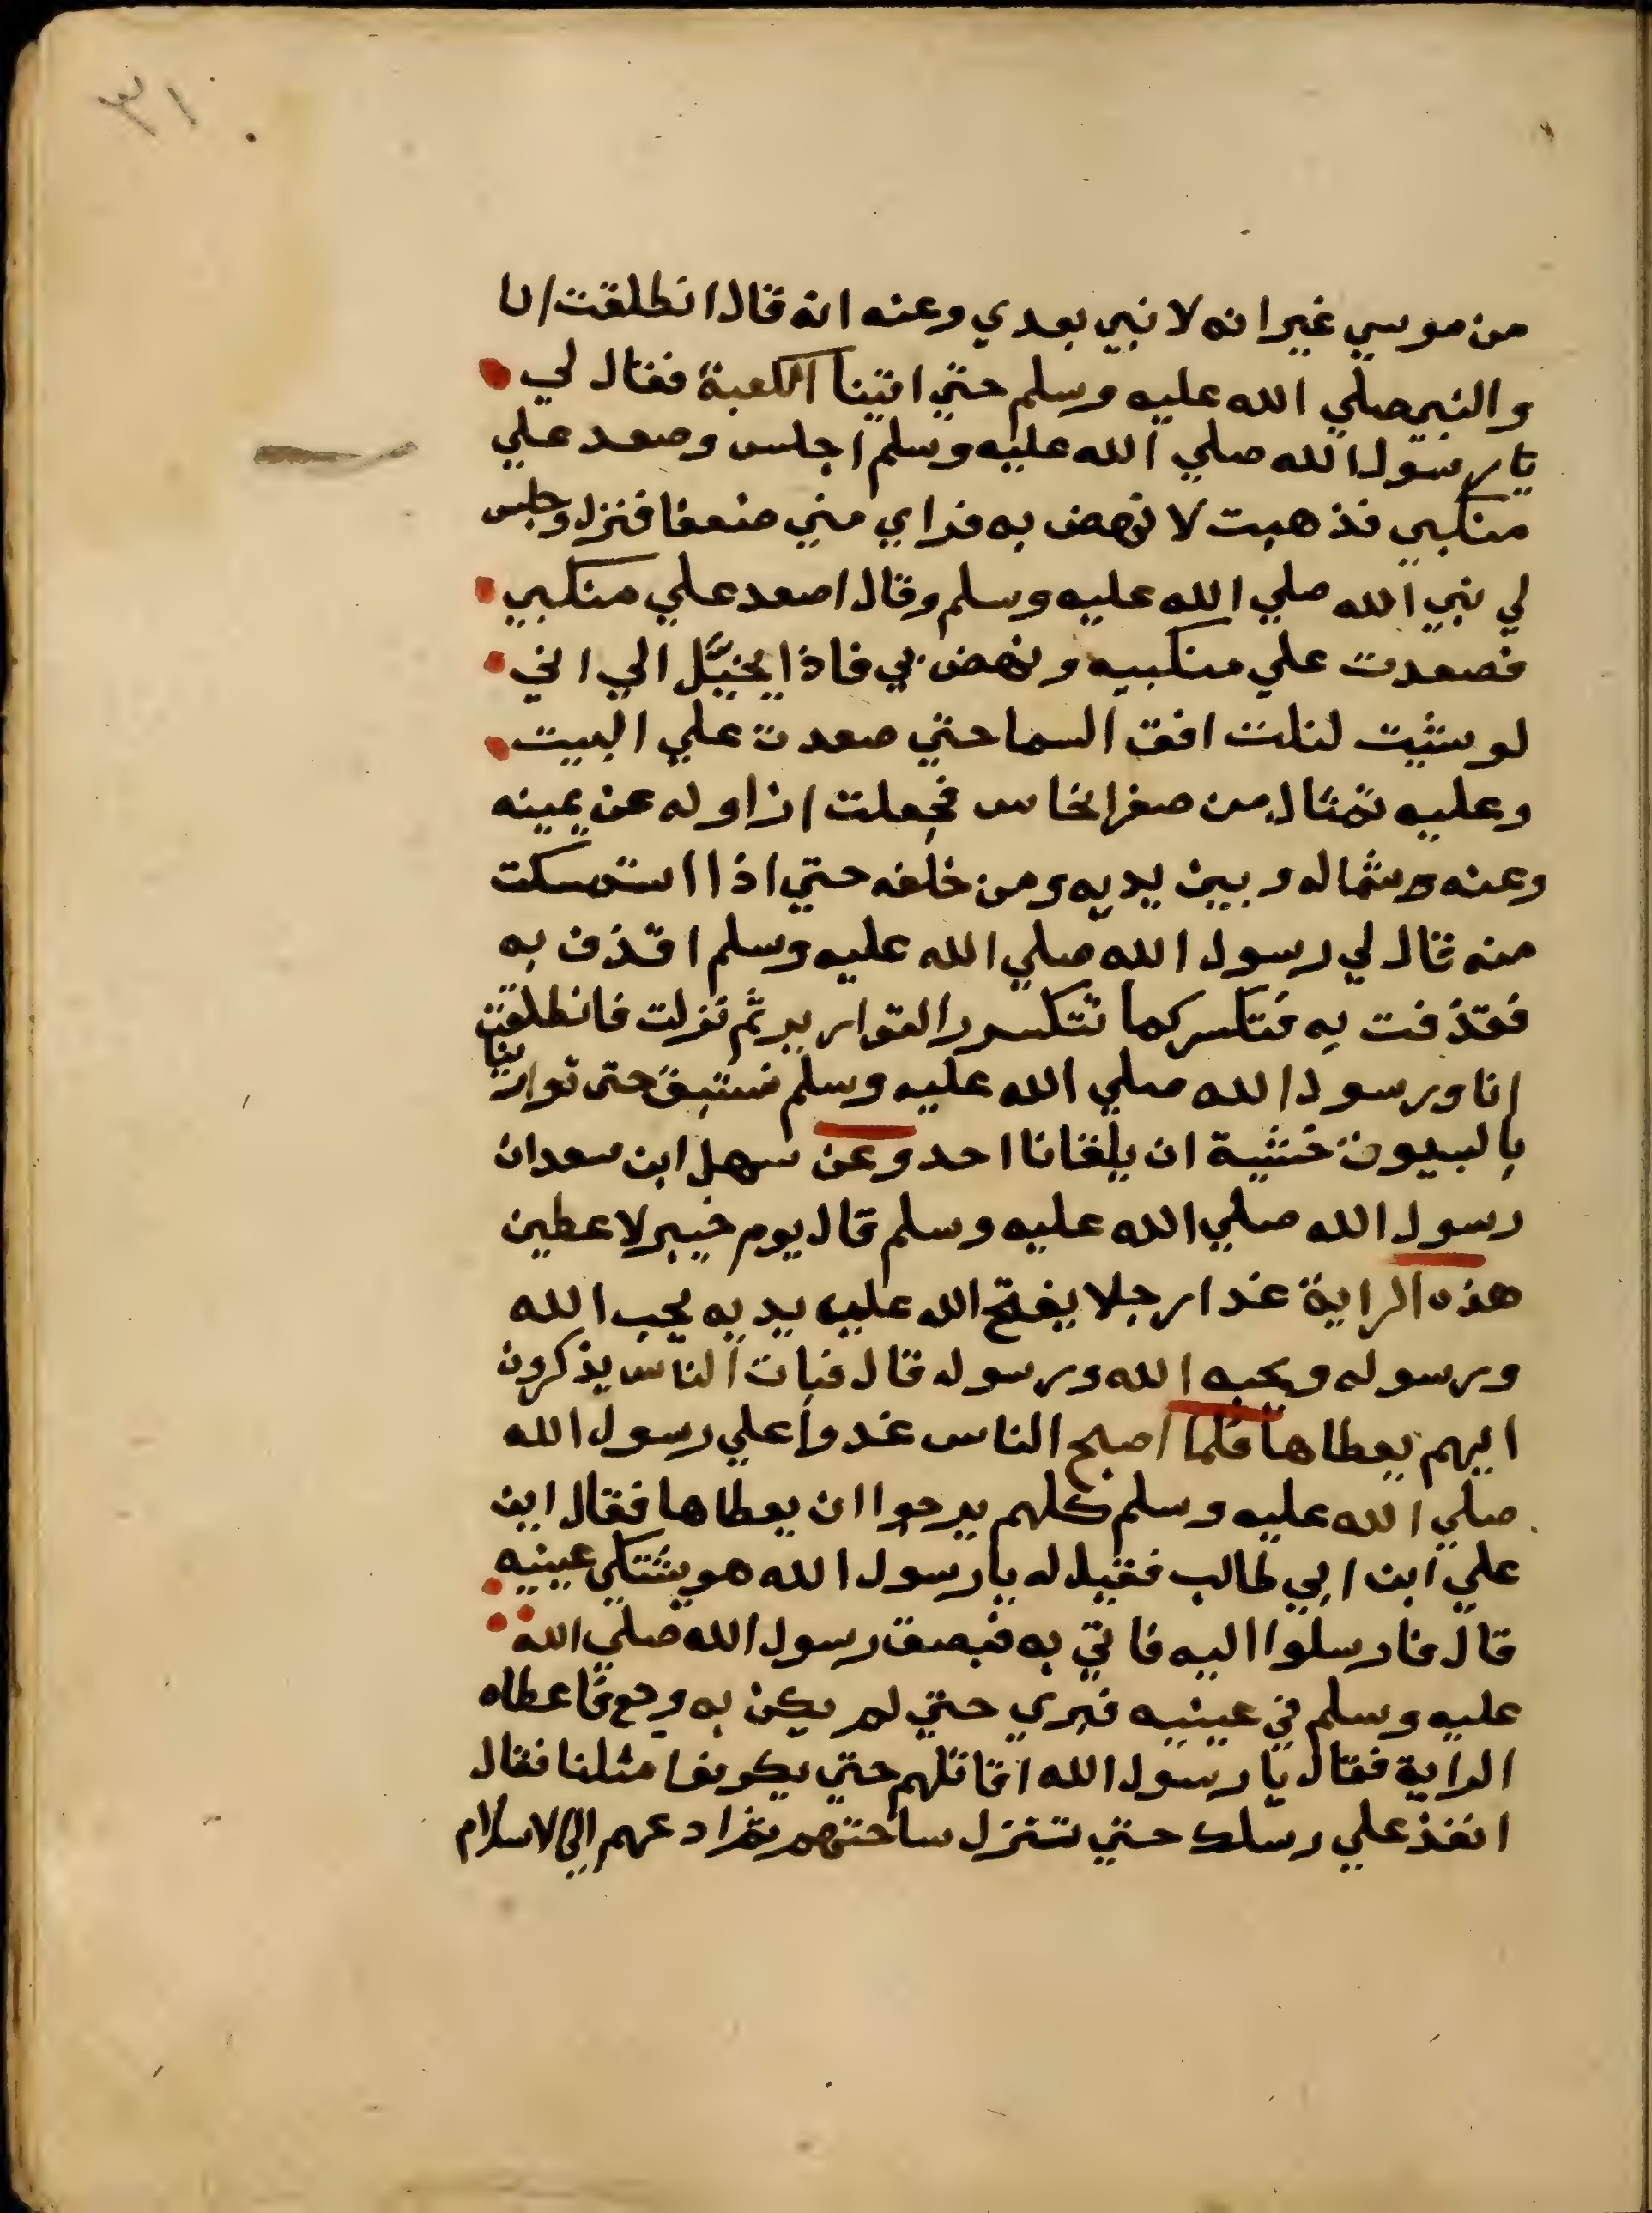 ٣١
من موسي غير انه لا نبي بعدي وعنه انه قال انطلقت انا
والنبي صلي الله عليه وسلم حتي اتينا الكعبة فقال لي
يا رسول الله صلي الله عليه وسلم اجلس وصعد علي
منكبي فذهبت لا نهض به فراي مني ضعفا فنزل وجلس
لي نبي الله صلي الله عليه وسلم وقال اصعد علي منكبي
فصعدت علي منكبيه ونهض بي فاذا يخيَّل الي اني
لو شيت لنلت افق السما حتي صعدت علي البيت
وعليه تمثال من صفر انحاس فجعلت ازاوله عن يمينه
وعنه وشماله وبين يديه ومن خلفه حتي اذا استمسكت
منه قال لي رسول الله صلي الله عليه وسلم اقذف به
فقذفت به فتكسر كما تتكسر القوارير ثم نزلت فانطلقت
انا ورسول الله صلي الله عليه وسلم نستبق حتى توارينا
بالبيوت خشية ان يلقانا احد وعن سهل ابن سعد ان
رسول الله صلي الله عليه وسلم قال يوم خيبر لاعطين
هذه الراية غدا رجلا يفتح الله علي يديه يحب الله
ورسوله ويحبه الله ورسوله قال فبات الناس يذكرون
ايهم يعطاها فلما اصبح الناس غدوا علي رسول الله
صلي الله عليه وسلم كلهم يرجوا ان يعطاها فقال اين
علي ابن ابي طالب فقيل له يا رسول الله هو يشتكي عينيه
قال فارسلوا اليه فاتي به فبصق رسول الله صلي الله
عليه وسلم في عينيه فبري حتي لم يكن به وجع فاعطاه
الراية فقال يا رسول الله اقاتلهم حتي يكونوا مثلنا فقال
انفذ علي رسلك حتي تنزل ساحتهم ثم ادعهم الي الاسلام